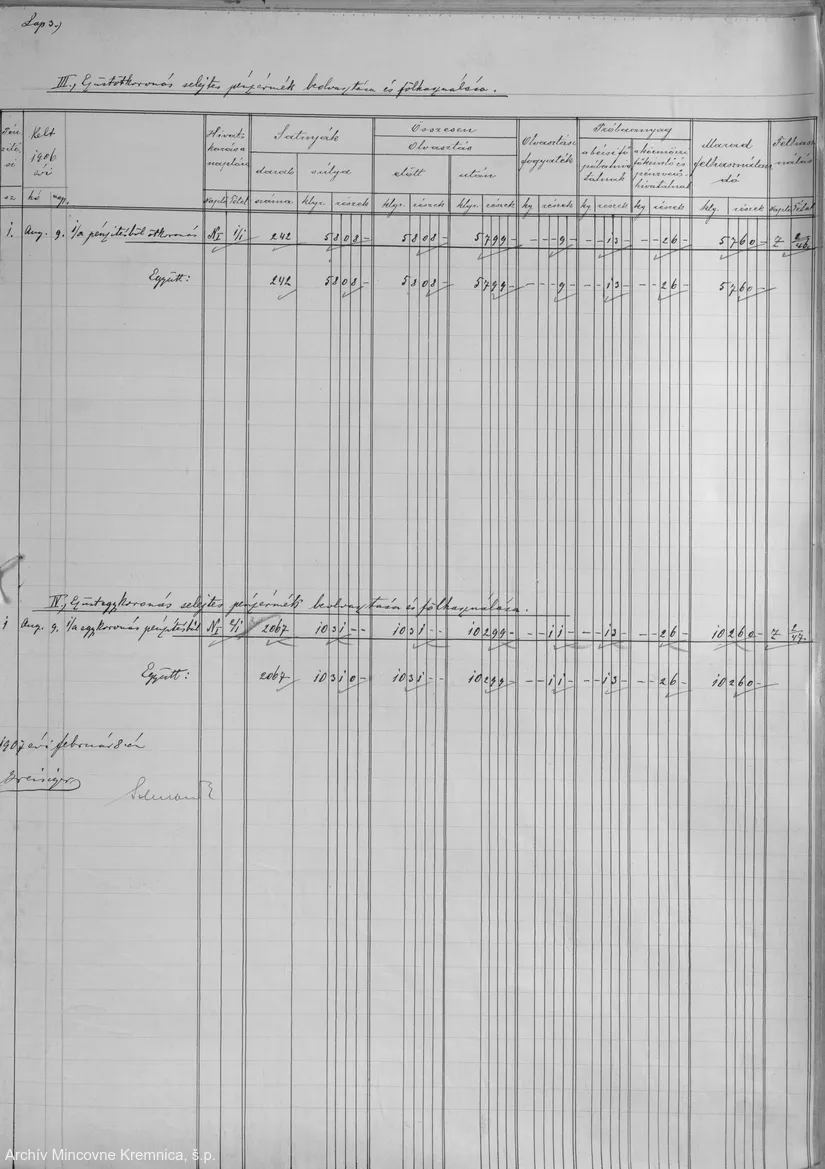 Lap 3.)
III., Ezüstötkoronás selejtes pénzérmék beolvasztása és fölhasználása.
Kelt 1906 évi
hó nap.
Hivatkozás a naplóra
napló tétel
darab száma
súlya
klgr. részek
Összesen
Olvasztás
előtt
klgr. részek
után
klgr. részek
Olvasztási fogyaték
kg részek
Próbaanyag
kg részek
kg részek
Marad felhasználandó
klg. részek
napló tétel
1. Aug. 9. 1/a pénzítésből ötkoronás N I 1/1 242 5808- 5808- 5799- ---9- --13- --26- 5760- 7 2/46.
Együtt: 242 5808- 5808- 5799- ---9- --13- --26- 5760-
IV., Ezüstegykoronás selejtes pénzérmék beolvasztása és fölhasználása.
1 Aug. 9. 1/a egykoronás pénzítésből N I 2/1 2067 1031-- 1031-- 10299- --11- --13- --26- 10260- 7 2/47.
Együtt: 2067 10310- 1031-- 10299- --11- --13- --26- 10260-
1907 évi február 8-án
Archív Mincovne Kremnica, š.p.